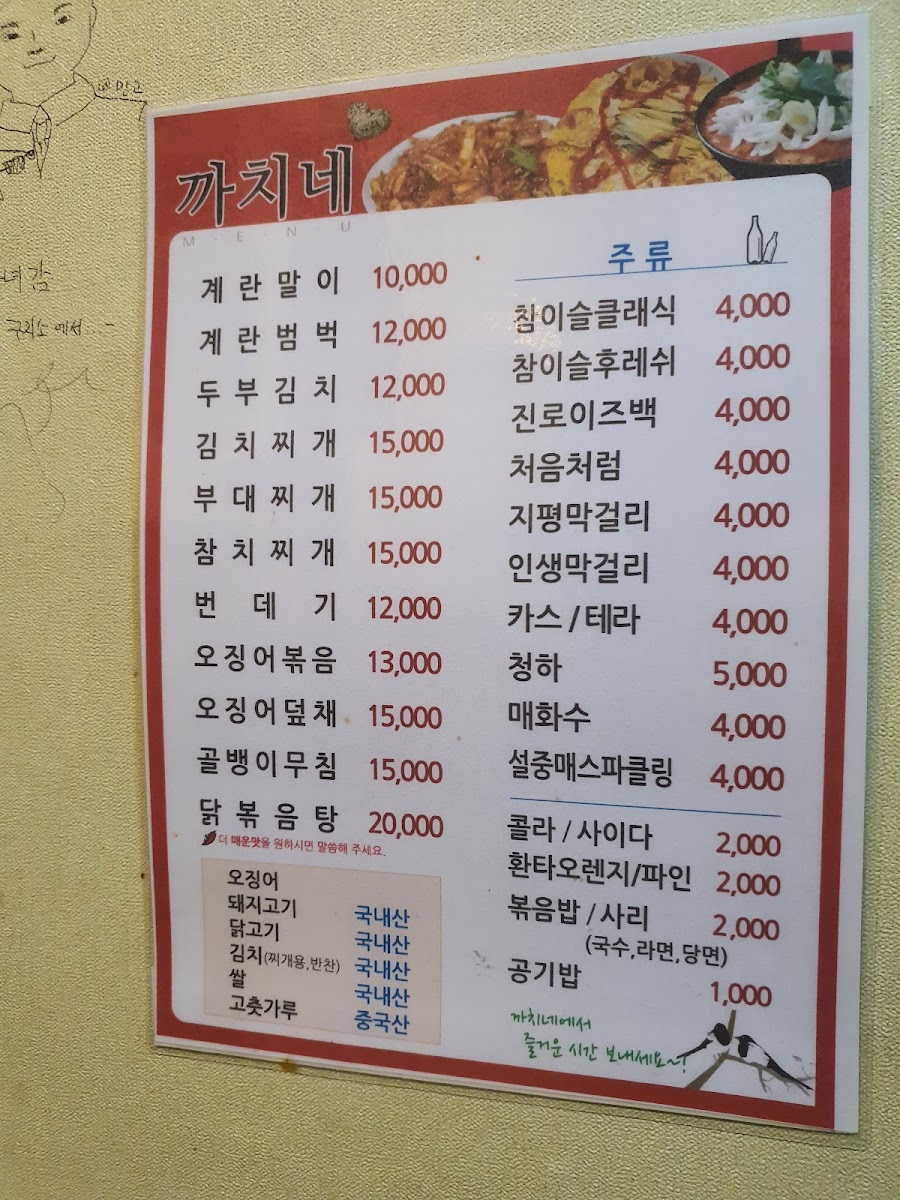 까치네
MENU
계란말이 10,000
계란범벅 12,000
두부김치 12,000
김치찌개 15,000
부대찌개 15,000
참치찌개 15,000
번데기 12,000
오징어볶음 13,000
오징어덮채 15,000
골뱅이무침 15,000
닭볶음탕 20,000
더 매운맛을 원하시면 말씀해 주세요.
오징어
돼지고기 국내산
닭고기 국내산
김치(찌개용,반찬) 국내산
쌀 국내산
고춧가루 중국산
주류
참이슬클래식 4,000
참이슬후레쉬 4,000
진로이즈백 4,000
처음처럼 4,000
지평막걸리 4,000
인생막걸리 4,000
카스 / 테라 4,000
청하 5,000
매화수 4,000
설중매스파클링 4,000
콜라 / 사이다 2,000
환타오렌지/파인 2,000
볶음밥 / 사리 2,000
(국수,라면,당면)
공기밥 1,000
까치네에서
즐거운 시간 보내세요~!